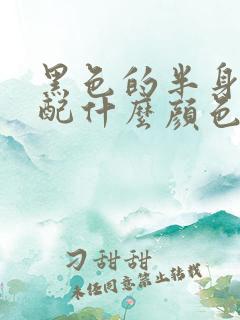 黑色的半身
配什麼顏色
刁甜甜
未经同意禁止转载